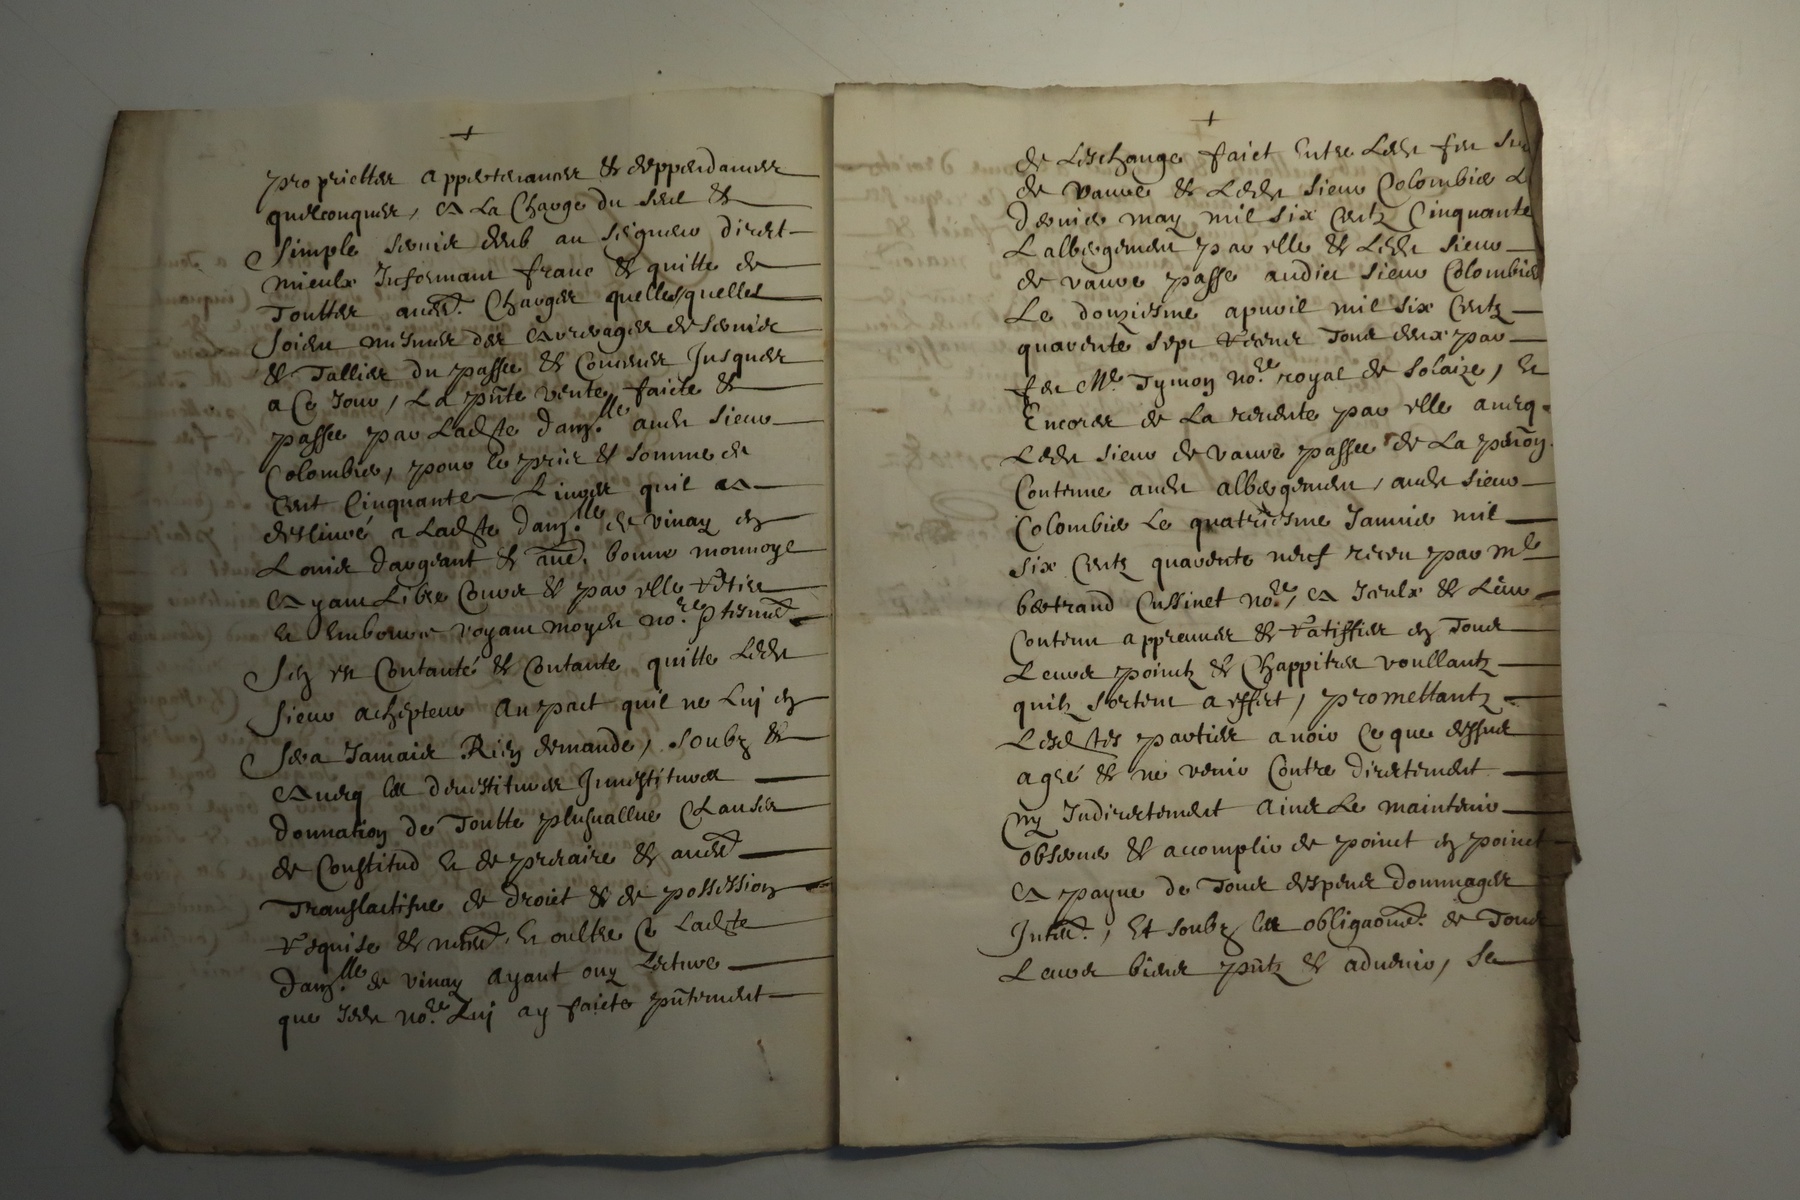 +
proprietter appertenances & deppendances
quelconques, a La Charge du seul &
simple servis deub au seigneur direct
mieulx Informant franc & quitte de
Touttes aues. Charges quelles quelles
soient mesmes des arrerages de servis
& Tallies du passe & Couruus Jusques
a Ce Jour, La pnte vente faicte &
passee par Ladte damlle audt sieur
Colombier, pour le prix & somme de
Cent Cinquante Livres quil a
deslivré a Ladte damlle de vinay en
Louis dargeant & aues. bonne monnoye
ayant Libre Cours & par elle retiree
et Emboursee voyant moyen nore. & tesmes
sen est Contanté & Contante quitte Ledt
sieur achepteur Au pact quil ne Luj en
sera Jamais Rien demande, soubz &
auecq les deuestitures Jnuestitures
donnation de Toutte plusuallue Clauses
de Constitud et de precaire & aues
Translactifue de droict & de possession
requise & necess. Et oultre Ce Ladte
damlle de vinay ayant ouy Lecture
que Jedt nore. Luj ay faicte pntement
+
de Leschange faict Entre Ledt feu sr
de vaure & Ledt sieur Colombier Le
dernier may mil six Centz Cinquante
Lalbergement par elle & Ledt sieur
de vaure passe audict sieur Colombier
Le douziesme apuril mil six Centz
quarente sept receus Tous deux par
feu Me. Tymon nore. royal de solaize, Et
Encores de La revente par elle auecq
Ledt sieur de vaure passee de La pension
Contenue audt albergement, audt sieur
Colombier Le quatriesme Januier mil
six Centz quarente neuf receu par Me
bertrand Cussinet nore, a Jceulx & Leur
Contenu appreuuer & ratiffier en Tous
Leurs poinctz & Chappitres voullantz
quilz sortent a effect, promettantz
Lesdtes parties auoir Ce que dessus
agré & ne venir Contre directement
ny Indirectement Ains Le maintenir
obseruer & accomplir de poinct en poinct
a payne de Tous despens dommages
Intes., Et soubz les obligaones. de Tous
Leurs biens pntz & aduenir, se